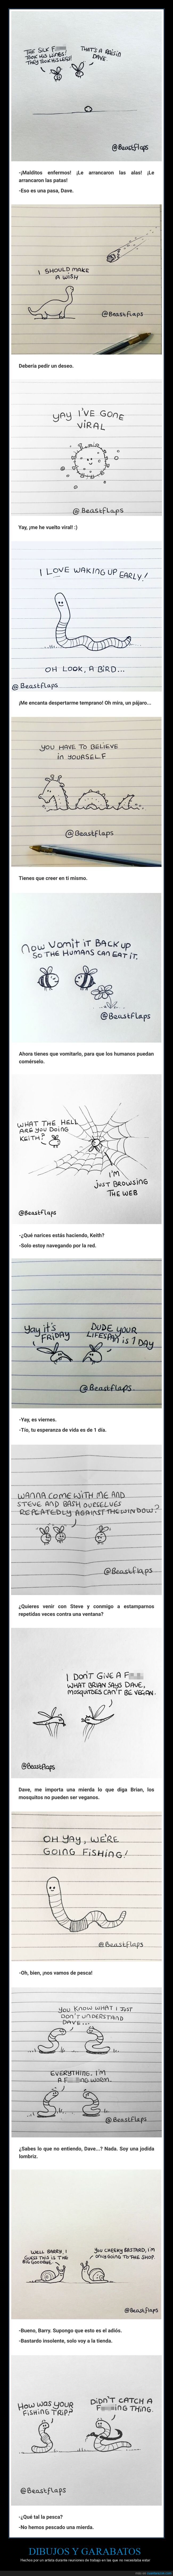 THE SICK F
TOOK HIS WINGS!
THEY TOOK HIS LEGS!
THAT'S A Raisin
DAVE.
@Beastflaps
-¡Malditos enfermos! ¡Le arrancaron las alas! ¡Le
arrancaron las patas!
-Eso es una pasa, Dave.
I SHOULD MAKE
A WISH
@Beastflaps
Debería pedir un deseo.
YAY I'VE GONE
VIRAL
@ Beastflaps
Yay, ¡me he vuelto viral! :)
I LOVE WAKING UP EARLY!
OH LOOK, A BIRD...
@ Beastflaps
¡Me encanta despertarme temprano! Oh mira, un pájaro...
YOU HAVE TO BELIEVE
in YOURSELF
@Beastflaps
Tienes que creer en ti mismo.
Now Vomit iT BACK up
SO THE HUMANS CAN EAT iT.
@Beastflaps
Ahora tienes que vomitarlo, para que los humanos puedan
comérselo.
WHAT THE HELL
ARE YOU DOING
KEITH?
I'M
JUST BROWSING
THE WEB
@Beastflaps
-¿Qué narices estás haciendo, Keith?
-Solo estoy navegando por la red.
Yay it's
FRIDAY
DUDE YOUR
LIFESPAN is 1 DAY
@Beastflaps.
-Yay, es viernes.
-Tío, tu esperanza de vida es de 1 día.
WANNA COME WITH ME AND
STEVE AND BASH OURSELVES
REPEATEDLY AGAINST THE WINDOW?
@Beastflaps
¿Quieres venir con Steve y conmigo a estamparnos
repetidas veces contra una ventana?
I DON'T GIVE A F
WHAT BRIAN SAYS DAVE,
MOSQUITOES CAN'T BE VEGAN.
@Beastflaps
Dave, me importa una mierda lo que diga Brian, los
mosquitos no pueden ser veganos.
OH YAY, WE'RE
GOING FISHING!
@Beastflaps
-Oh, bien, ¡nos vamos de pesca!
YOU KNOW WHAT I JUST
DON'T UNDERSTAND
DAVE...
EVERYTHING. I'M
A F ING WORM.
@ Beastflaps
¿Sabes lo que no entiendo, Dave...? Nada. Soy una jodida
lombriz.
WELL BARRY, I
GUESS THIS IS THE
BIG GOODBYE.
YOU CHEEKY BASTARD, I'M
ONLY GOING TO THE SHOP.
@Beastflaps
-Bueno, Barry. Supongo que esto es el adiós.
-Bastardo insolente, solo voy a la tienda.
HOW WAS YOUR
FISHING TRIP?
DIDN'T CATCH A
F ING THING.
@Beastflaps
-¿Qué tal la pesca?
-No hemos pescado una mierda.
DIBUJOS Y GARABATOS